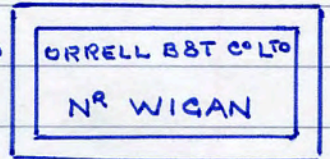 ORRELL B&T Cº LTD
Nᴿ WIGAN